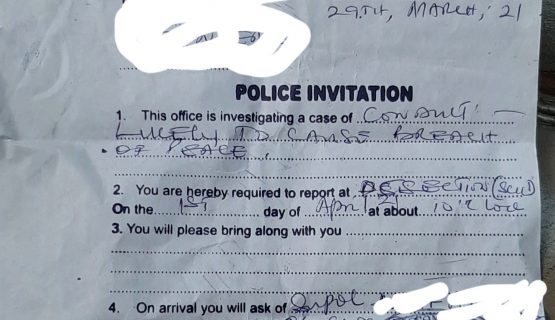 29TH, MARCH, 21
POLICE INVITATION
1. This office is investigating a case of Conduct
LIKELY TO CAUSE BREACH
OF PEACE.
2. You are hereby required to report at SECTION
On the 1ST day of April 21 at about 10'
3. You will please bring along with you
4. On arrival you will ask of